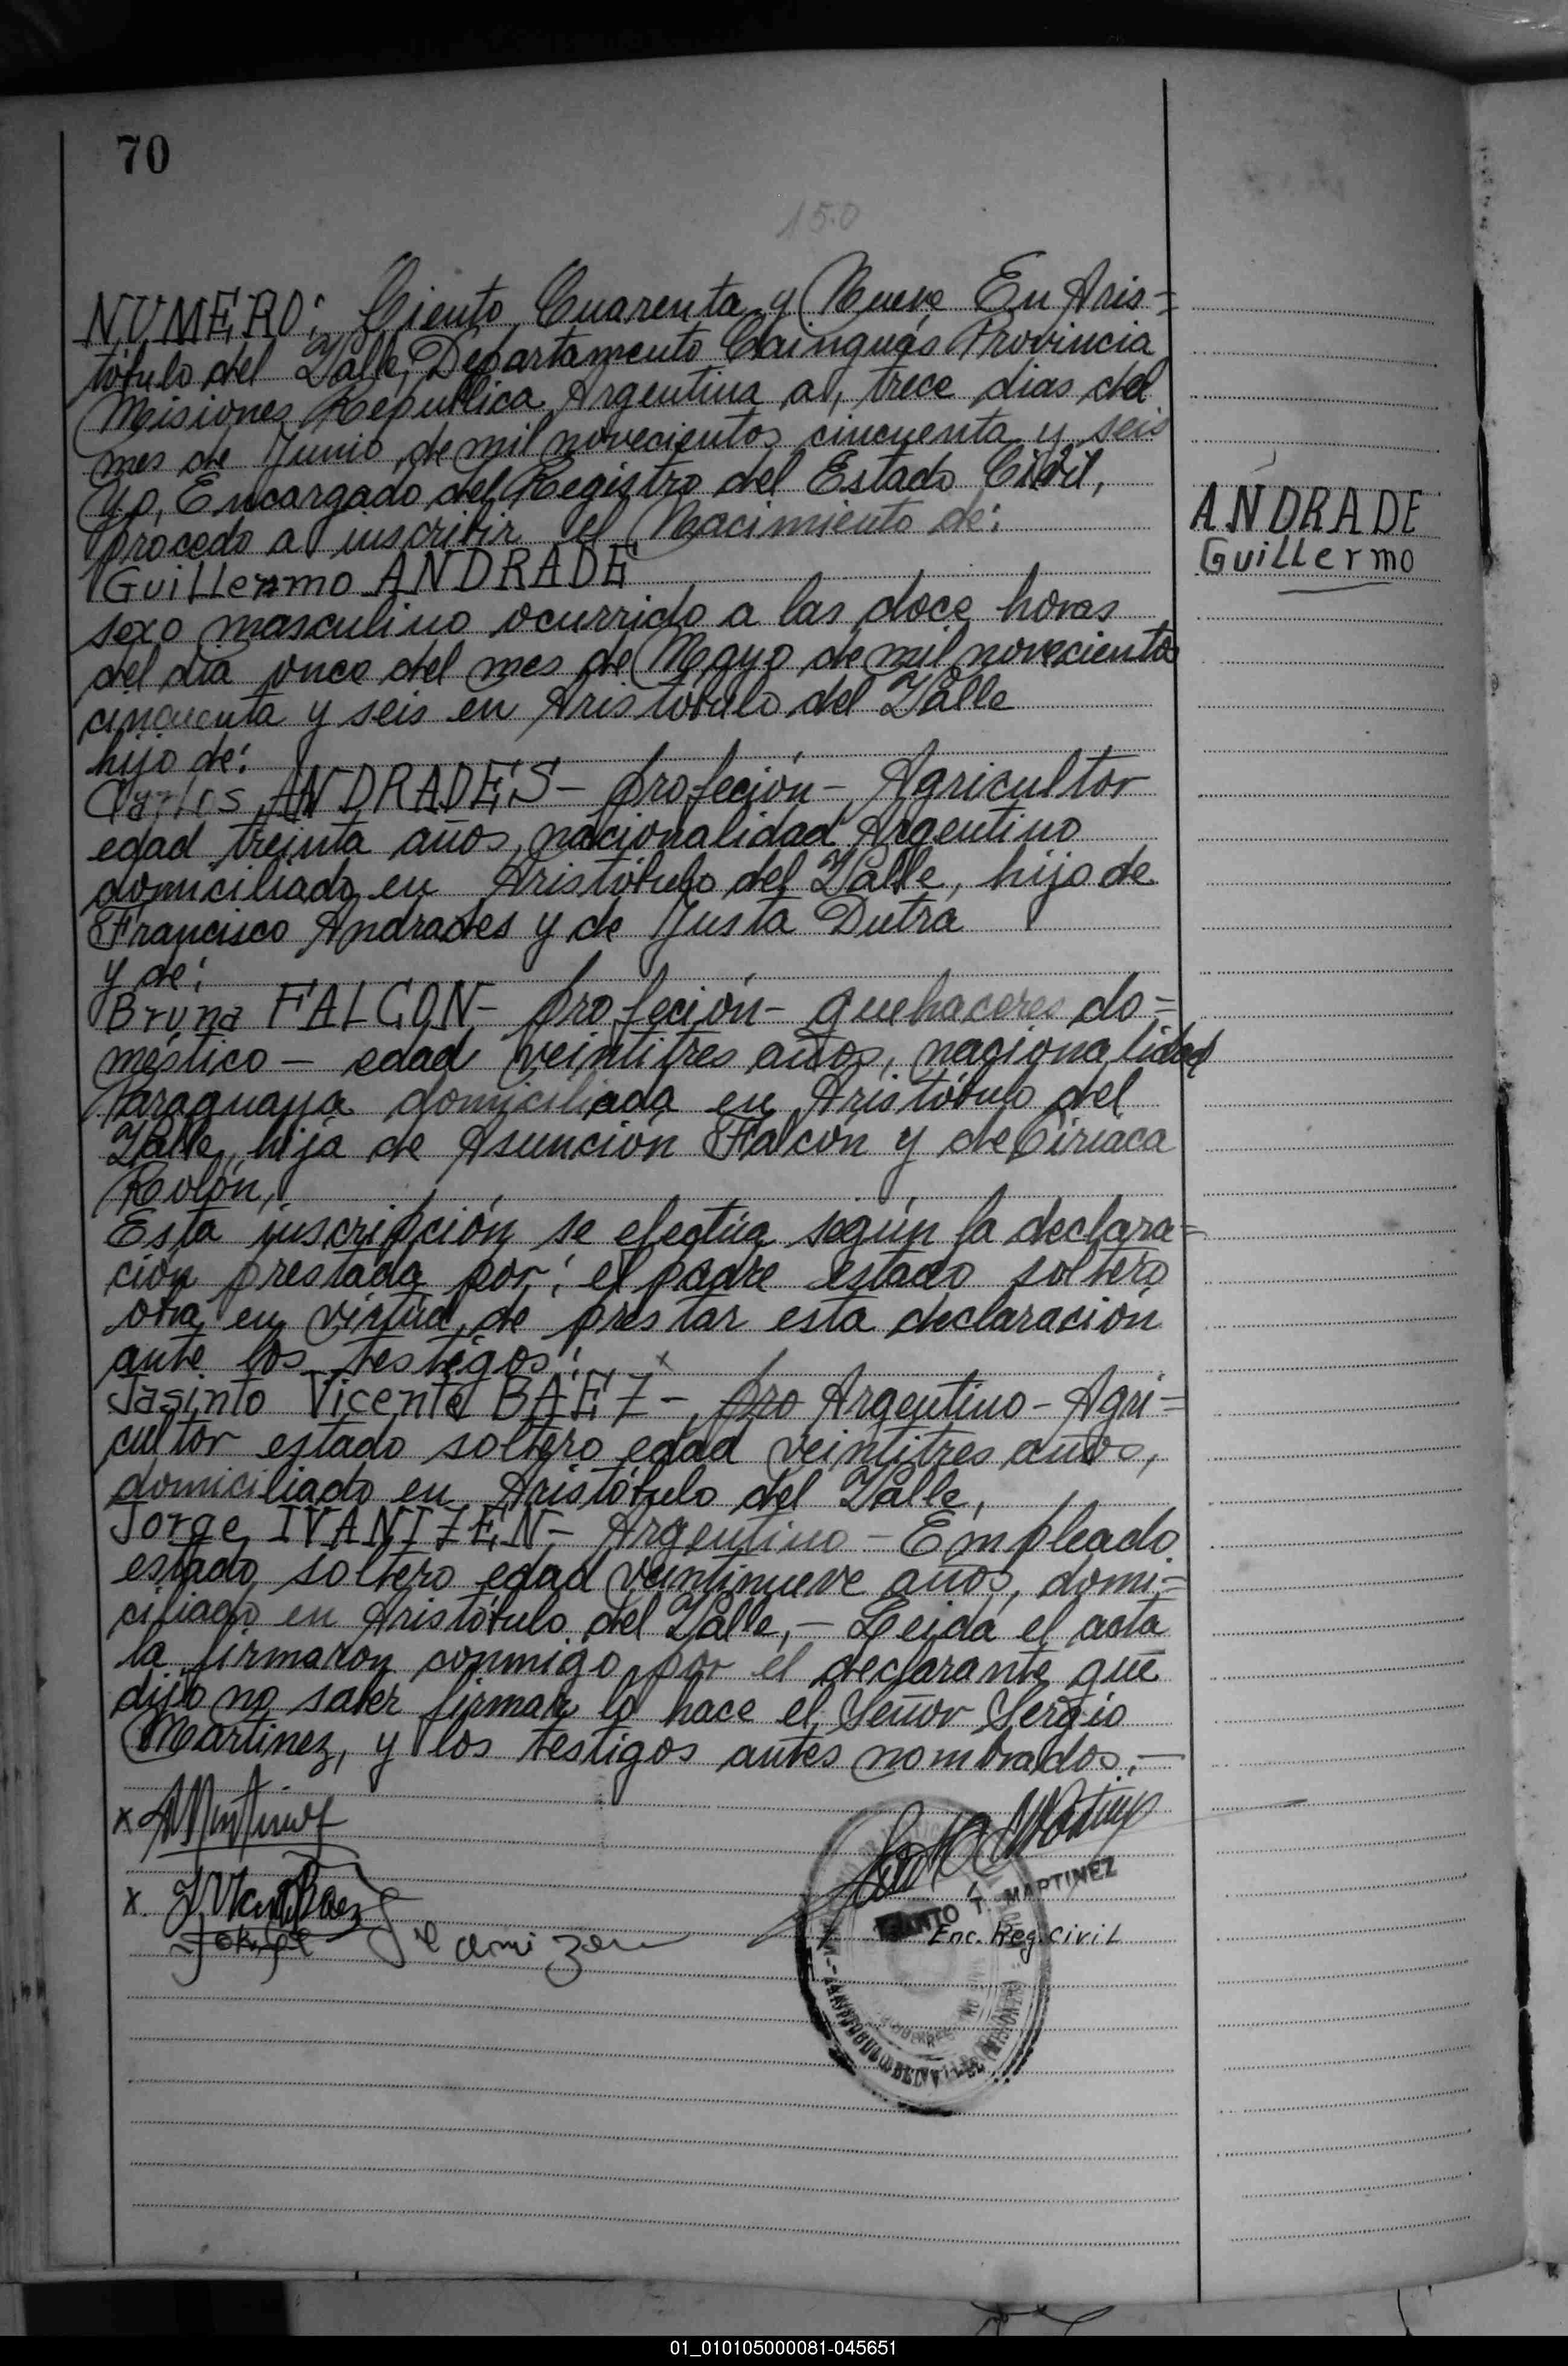 70
150
NUMERO: Ciento Cuarenta y Nueve En Aris=
tóbulo del Valle, Departamento Cainguás Provincia
Misiones República Argentina a, trece dias del
mes de Junio, de mil novecientos cincuenta y seis
yo, Encargado del Registro del Estado Civil,
procedo a inscribir el Nacimiento de:
Guillermo ANDRADE
ANDRADE
Guillermo
sexo masculino ocurrido a las doce horas
del día once del mes de Mayo de mil novecientos
cincuenta y seis en Aristóbulo del Valle
hijo de:
Carlos ANDRADES - profeción - Agricultor
edad treinta años, nacionalidad Argentino
domiciliado en Aristóbulo del Valle, hijo de
Francisco Andrades y de Justa Dutra
y de:
Bruna FALCON - profeción - quehaceres do=
méstico - edad veintitres años, nacionalidad
Paraguaya domiciliada en Aristóbulo del
Valle, hija de Asunción Falcón y de Ciriaca
Rolón,
Esta inscripción se efectúa según la declara=
ción prestada por: el padre estado soltero
obra en virtud de prestar esta declaración
ante los testigos:
Jasinto Vicente BAEZ - pro Argentino - Agri=
cultor estado soltero edad veintitres años,
domiciliado en Aristóbulo del Valle,
Jorge IVANIZEN - Argentino - Empleado
estado soltero edad veintinueve años, domi=
ciliado en Aristóbulo del Valle, - Leida el acta
la firmaron conmigo, por el declarante que
dijo no saber firmar lo hace el Señor Sergio
Martinez, y los testigos antes nombrados. -
x
x
Jorge
T. MARTINEZ
Enc. Reg. Civil
01_010105000081-045651